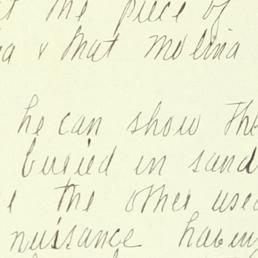 the piece of
& that Molina
he can show the
buried in sand
the other used
nuisance having